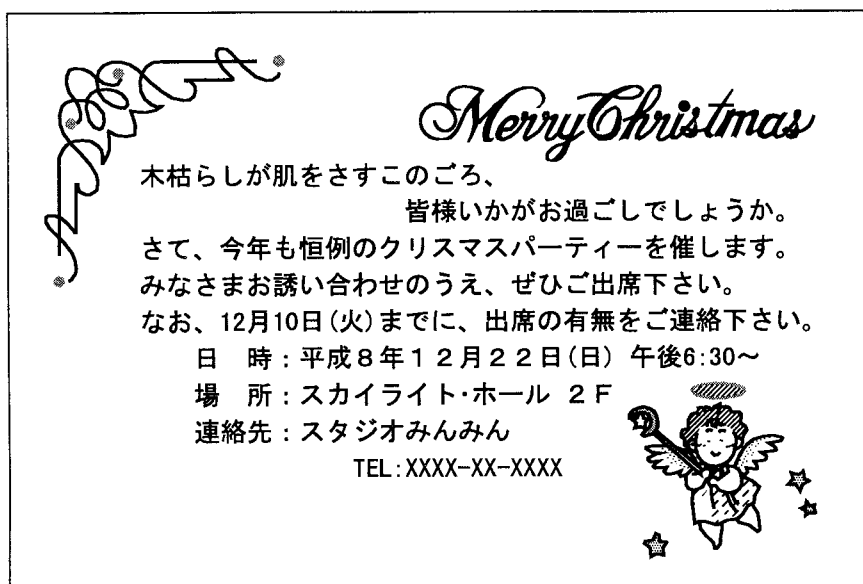 Merry Christmas
木枯らしが肌をさすこのごろ、
皆様いかがお過ごしでしょうか。
さて、今年も恒例のクリスマスパーティーを催します。
みなさまお誘い合わせのうえ、ぜひご出席下さい。
なお、12月10日(火)までに、出席の有無をご連絡下さい。
日　時：平成８年１２月２２日(日) 午後6:30～
場　所：スカイライト・ホール ２Ｆ
連絡先：スタジオみんみん
TEL:XXXX-XX-XXXX